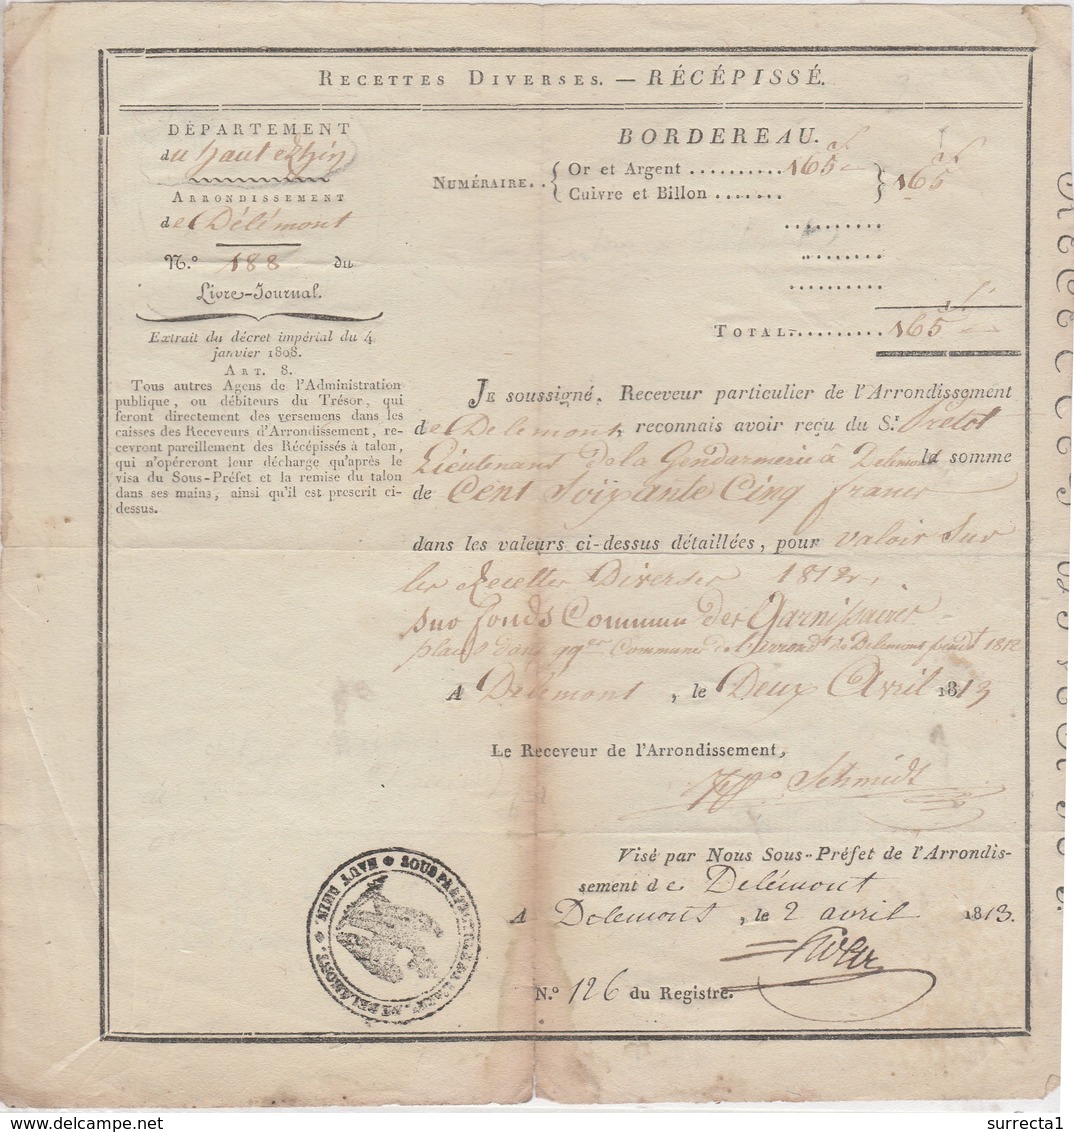 RECETTES DIVERSES. — RÉCÉPISSÉ.
DÉPARTEMENT
du haut Rhin
ARRONDISSEMENT
de Délémont
N.º 188 du
Livre-Journal.
Extrait du décret impérial du 4
janvier 1808.
ART. 8.
Tous autres Agens de l'Administration
publique, ou débiteurs du Trésor, qui
feront directement des versemens dans les
caisses des Receveurs d'Arrondissement, re-
cevront pareillement des Récépissés à talon,
qui n'opéreront leur décharge qu'après le
visa du Sous-Préfet et la remise du talon
dans ses mains, ainsi qu'il est prescrit ci-
dessus.
BORDEREAU.
NUMÉRAIRE..
Or et Argent .......... 165 f
Cuivre et Billon .......
165 f
TOTAL.......... 165 f
JE soussigné, Receveur particulier de l'Arrondissement
de Delémont, reconnais avoir reçu du S.r Prétot
Lieutenant de la Gendarmerie à Delémont la somme
de Cent Soixante Cinq francs
dans les valeurs ci-dessus détaillées, pour valoir Sur
les Recettes Diverses 1812,
sur fonds Commun des Garnisaires
placés dans Communes de l'arrond.t de Delémont pend.t 1812
A Delémont, le Deux Avril 1813
Le Receveur de l'Arrondissement,
Schmidt
Visé par Nous Sous-Préfet de l'Arrondis-
sement de Delémont
A Delémont, le 2 avril 1813.
N.º 126 du Registre.
SOUS PRÉFECTURE DE DELÉMONT. HAUT RHIN.
www.delcampe.net
surrecta1